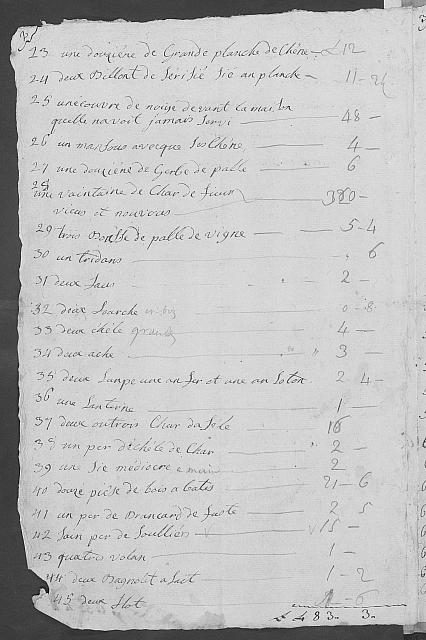 23 une douziéne de Grande planche de Chéne - £ 12
24 deux Billont de Sérisié Sié an planche - 11 - 2
25 une couvre de noisé devant la maison
quelle navoit jamais Servi - 48 -
26 un man sous avecque Ses Chéne - 4 -
27 une douziéne de Gerbe de palle - 6
28
une vaintaine de Char de fuun
vieus et nouveaus - 380 -
29 trois Bousse de palle de vigne - 5 - 4
30 un tridans 6
31 deux Saus - 2 -
32 deux Sarche 0 - 8
33 deux chéle grande - 4 -
34 deux ache - 3 -
35 deux Lanpe une an fer et une an Loton 2 4 -
36 une Lanterne - 1 -
37 deux outrois Char da Séle 16
38 un per déchéle de Char - 2 -
39 une Sie médiocre a main 2
40 douze piése de bois a batir - 21 - 6
41 un per de Brancard de faste - 2 5
42 Sain per de Soulliers - 15 -
43 quatres volan - 1 -
44 deux Bagnolet a Lait 1 - 2
45 deux flot - 6
£ 483 - 3 -